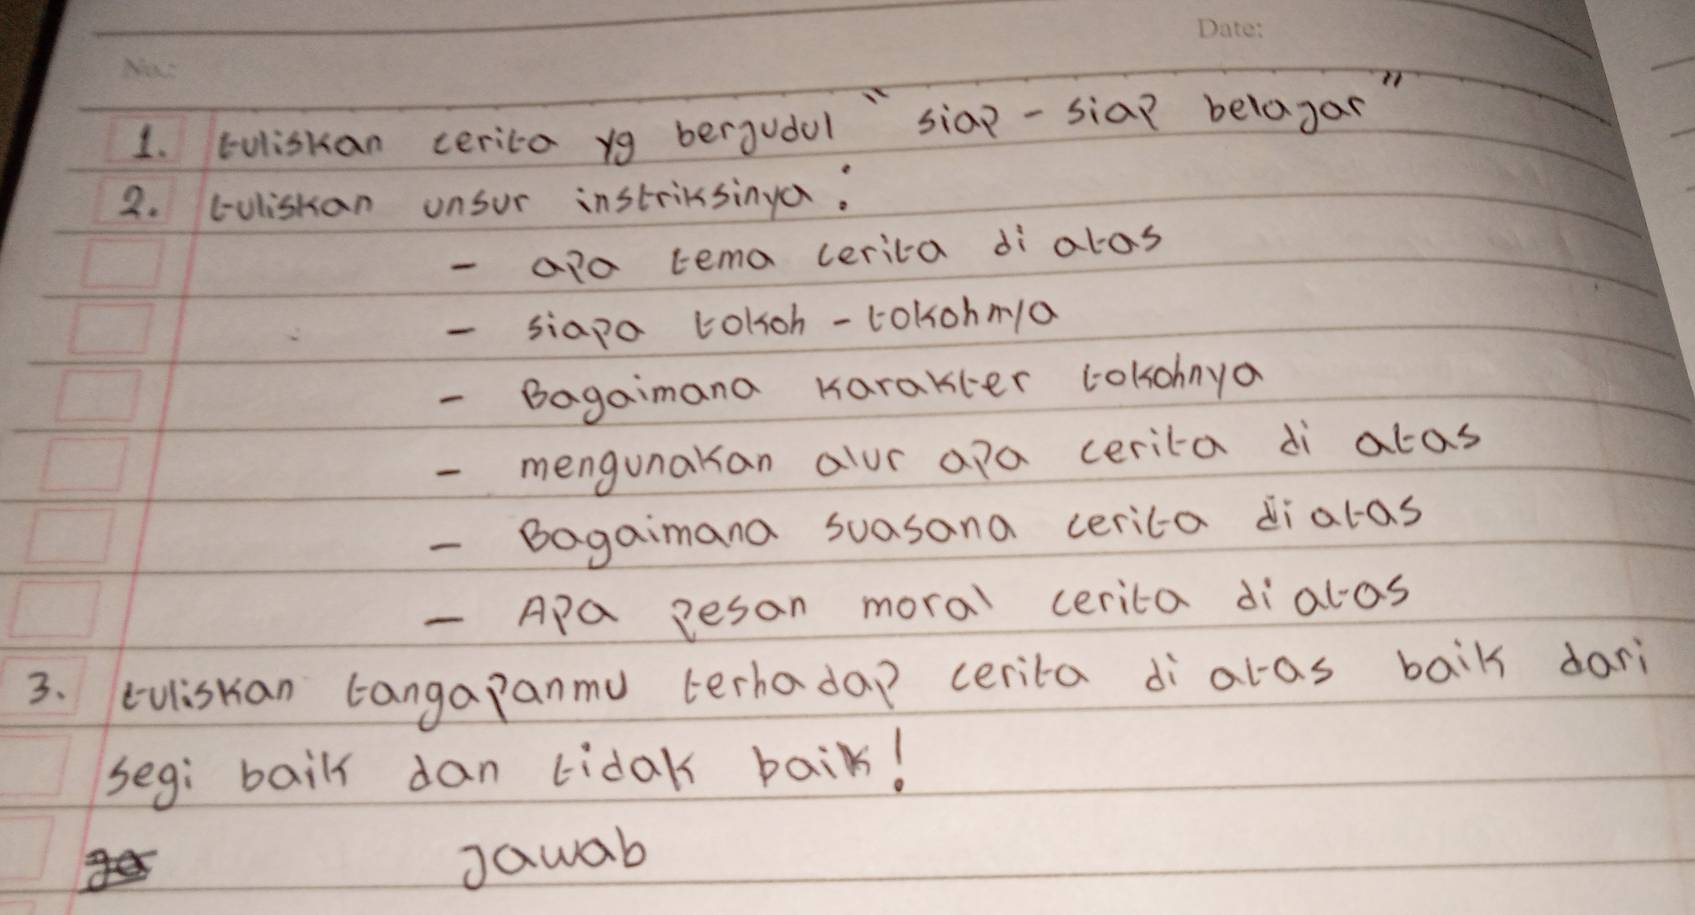 Date:
No.:
1. tuliskan cerita yg berjudul "siap - siap belajar"
2. tuliskan unsur instriksinya:
- apa tema cerita di atas
- siapa tokoh - tokohnya
- Bagaimana karakter tokohnya
- mengunakan alur apa cerita di atas
- Bagaimana suasana cerita diatas
- Apa pesan moral cerita diatas
3. tuliskan tangapanmu terhadap cerita di atas baik dari
segi baik dan tidak baik!
Jawab